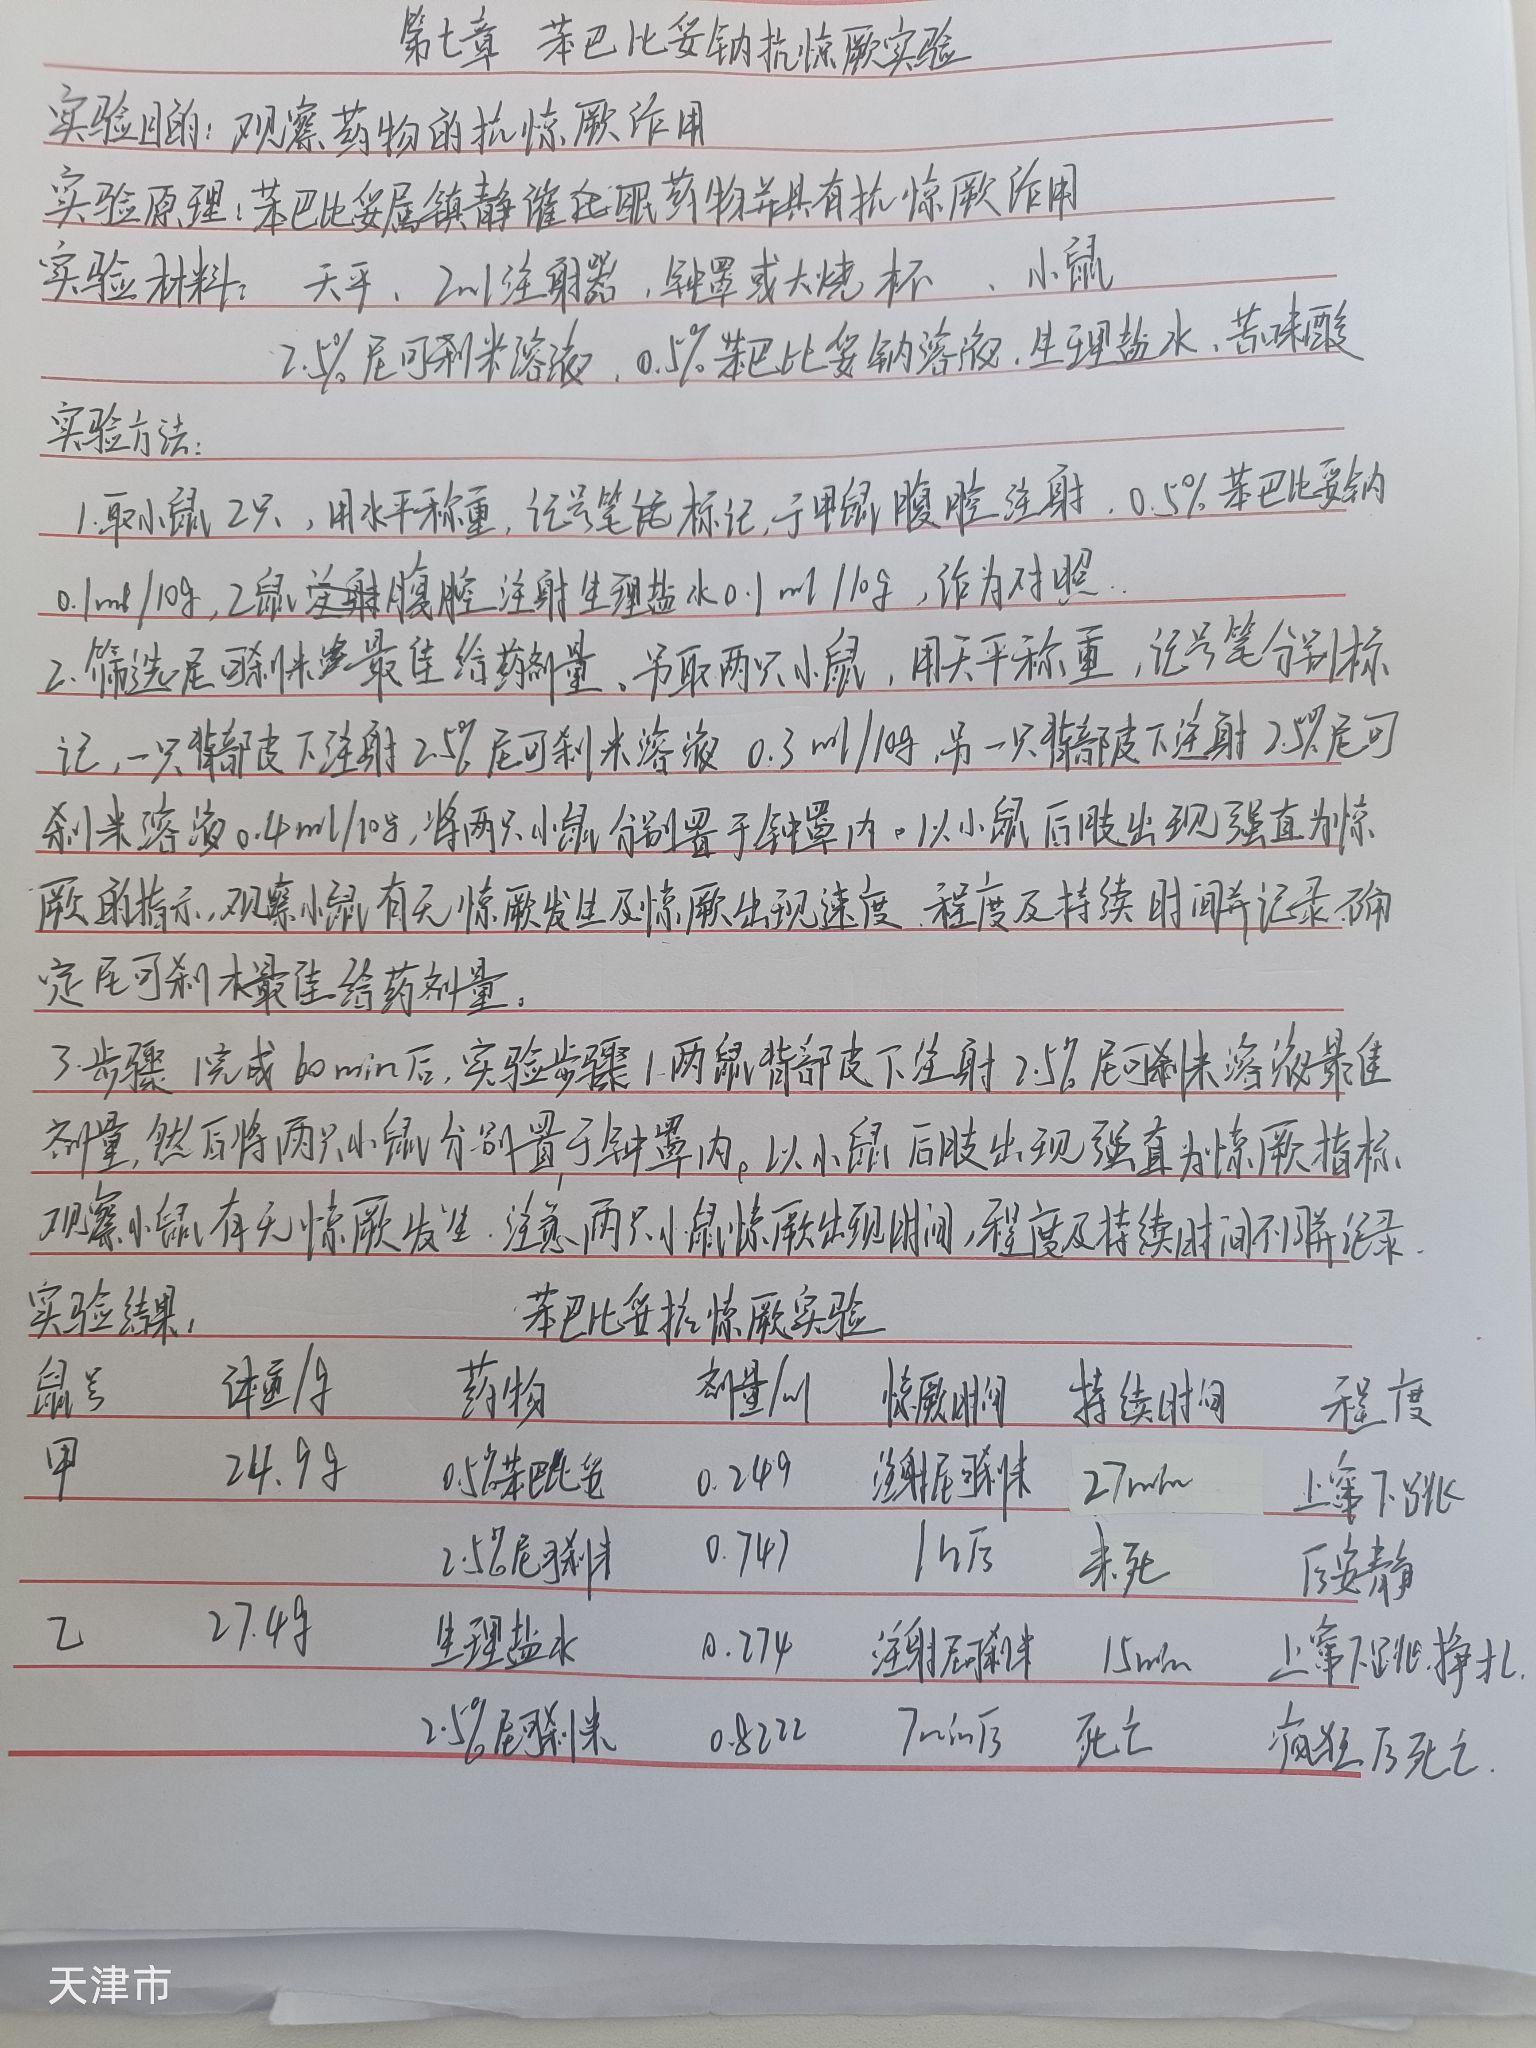 第七章 苯巴比妥钠抗惊厥实验
实验目的：观察药物的抗惊厥作用
实验原理：苯巴比妥属镇静催眠药物并具有抗惊厥作用
实验材料：天平、2ml注射器、钟罩或大烧杯、小鼠
2.5%尼可刹米溶液、0.5%苯巴比妥钠溶液、生理盐水、苦味酸
实验方法：
1.取小鼠2只，用水平称重，记号笔标记，于甲鼠腹腔注射，0.5%苯巴比妥钠
0.1ml/10g，乙鼠腹腔注射生理盐水0.1ml/10g，作为对照．
2.筛选尼可刹米最佳给药剂量、另取两只小鼠，用天平称重，记号笔分别标
记，一只背部皮下注射2.5%尼可刹米溶液0.3ml/10g，另一只背部皮下注射2.5%尼可
刹米溶液0.4ml/10g，将两只小鼠分别置于钟罩内。以小鼠后肢出现强直为惊
厥的指示，观察小鼠有无惊厥发生及惊厥出现速度、程度及持续时间并记录、确
定尼可刹米最佳给药剂量。
3.步骤1完成60min后，实验步骤1两鼠背部皮下注射2.5%尼可刹米溶液最佳
剂量，然后将两只小鼠分别置于钟罩内。以小鼠后肢出现强直为惊厥指标
观察小鼠有无惊厥发生．注意两只小鼠惊厥出现时间，程度及持续时间不同并记录．
实验结果： 苯巴比妥抗惊厥实验
鼠号 体重/g 药物 剂量/ml 惊厥时间 持续时间 程度
甲 24.9g 0.5%苯巴比妥 0.249 注射尼可刹米 27min 上窜下跳
2.5%尼可刹米 0.747 1h后 未死 后安静
乙 27.4g 生理盐水 0.274 注射尼可刹米 15min 上窜下跳．挣扎．
2.5%尼可刹米 0.8222 7min后 死亡 疯狂后死亡．
天津市